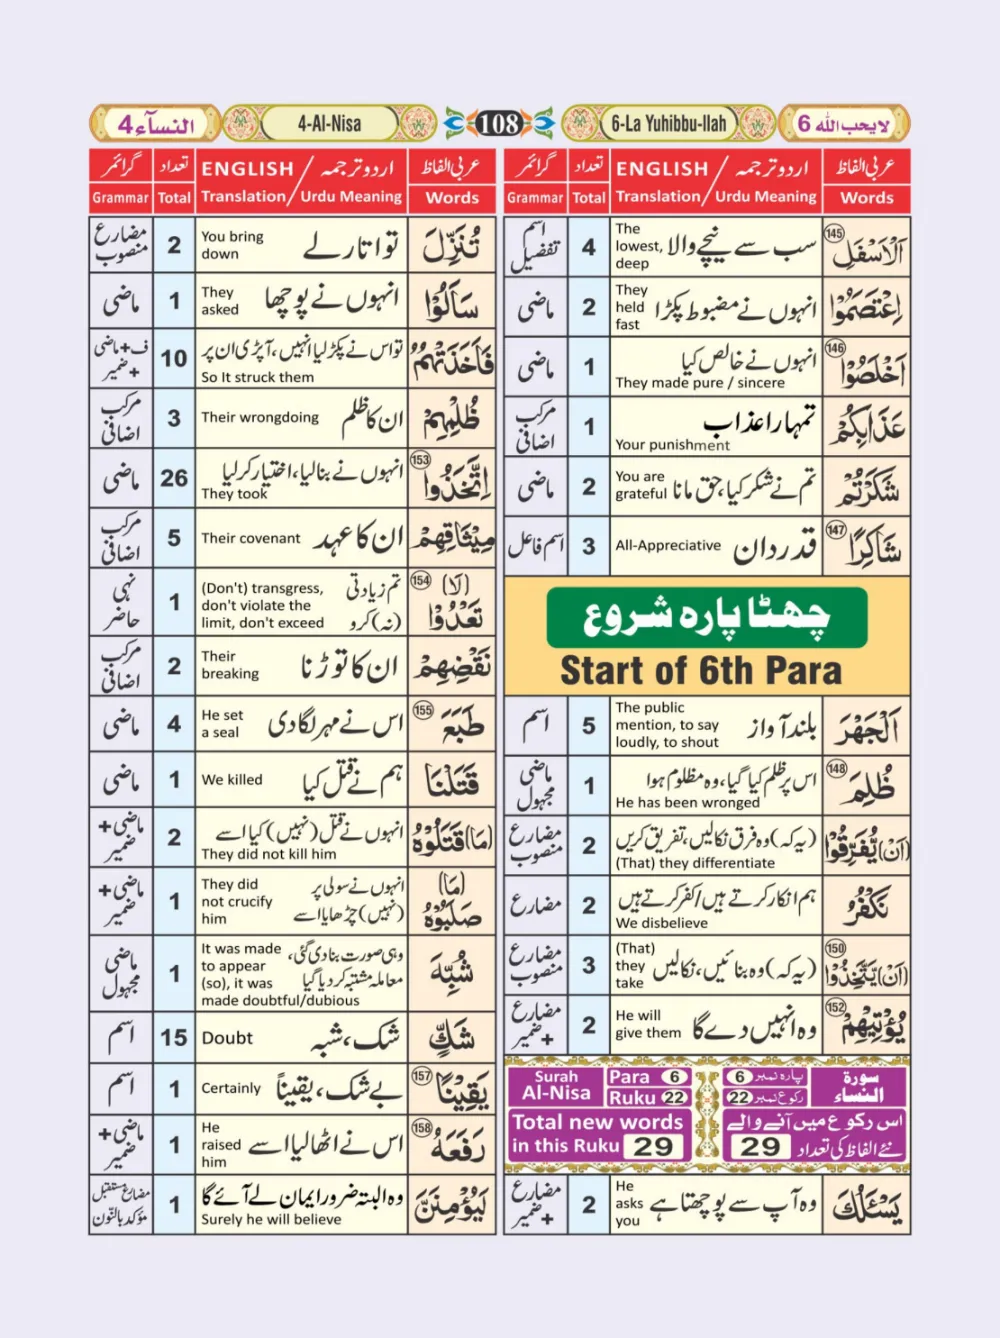 لا یحب الله 6
6-La Yuhibbu-Ilah
108
4-Al-Nisa
النسآء 4
عربی الفاظ
اردو ترجمہ / ENGLISH
تعداد
گرائمر
Words
Translation / Urdu Meaning
Total
Grammar
145 اَلْاَسْفَلِ
سب سے نیچے والا
The lowest, deep
4
اسم تفضیل
اِعْتَصَمُوْا
انہوں نے مضبوط پکڑا
They held fast
2
ماضی
146 اَخْلَصُوْا
انہوں نے خالص کیا
They made pure / sincere
1
ماضی
عَذَابِكُمْ
تمہارا عذاب
Your punishment
1
مرکب اضافی
شَكَرْتُمْ
تم نے شکر کیا، حق مانا
You are grateful
2
ماضی
147 شَاكِرًا
قدر دان
All-Appreciative
3
اسم فاعل
چھٹا پارہ شروع
Start of 6th Para
اَلْجَهْرَ
بلند آواز
The public mention, to say loudly, to shout
5
اسم
148 ظُلِمَ
اس پر ظلم کیا گیا، وہ مظلوم ہوا
He has been wronged
1
ماضی مجہول
(اَنْ) يُّفَرِّقُوْا
(یہ کہ) وہ فرق نکالیں، تفریق کریں
(That) they differentiate
2
مضارع منصوب
نَكْفُرُ
ہم انکار کرتے ہیں/کفر کرتے ہیں
We disbelieve
2
مضارع
150 (اَنْ) يَّتَّخِذُوْا
(یہ کہ) وہ بنائیں، نکالیں
(That) they take
3
مضارع منصوب
152 يُؤْتِيْهِمْ
وہ انہیں دے گا
He will give them
2
مضارع + ضمیر
Surah Al-Nisa
Para 6
Ruku 22
پارہ نمبر 6
رکوع نمبر 22
سورۃ النساء
Total new words in this Ruku 29
اس رکوع میں آنے والے نئے الفاظ کی تعداد 29
يَسْـَٔلُكَ
وہ آپ سے پوچھتا ہے
He asks you
2
مضارع + ضمیر
عربی الفاظ
اردو ترجمہ / ENGLISH
تعداد
گرائمر
Words
Translation / Urdu Meaning
Total
Grammar
تُنَزِّلَ
تو اتار لے
You bring down
2
مضارع منصوب
سَاَلُوْا
انہوں نے پوچھا
They asked
1
ماضی
فَاَخَذَتْهُمُ
تو اس نے پکڑ لیا انہیں، آ پڑی ان پر
So It struck them
10
ف + ماضی + ضمیر
ظُلْمِهِمْ
ان کا ظلم
Their wrongdoing
3
مرکب اضافی
153 اِتَّخَذُوا
انہوں نے بنا لیا، اختیار کر لیا
They took
26
ماضی
مِيْثَاقِهِمْ
ان کا عہد
Their covenant
5
مرکب اضافی
154 (لَا) تَعْدُوْا
تم زیادتی (نہ) کرو
(Don't) transgress, don't violate the limit, don't exceed
1
نہی حاضر
نَقْضِهِمْ
ان کا توڑنا
Their breaking
2
مرکب اضافی
155 طَبَعَ
اس نے مہر لگا دی
He set a seal
4
ماضی
قَتَلْنَا
ہم نے قتل کیا
We killed
1
ماضی
(مَا) قَتَلُوْهُ
انہوں نے قتل (نہیں) کیا اسے
They did not kill him
2
ماضی + ضمیر
(مَا) صَلَبُوْهُ
انہوں نے سولی پر (نہیں) چڑھایا اسے
They did not crucify him
1
ماضی + ضمیر
شُبِّهَ
وہی صورت بنا دی گئی، معاملہ مشتبہ کر دیا گیا
It was made to appear (so), it was made doubtful/dubious
1
ماضی مجہول
شَكٍّ
شک، شبہ
Doubt
15
اسم
157 يَقِيْنًا
بے شک، یقیناً
Certainly
1
اسم
158 رَفَعَهُ
اس نے اٹھا لیا اسے
He raised him
1
ماضی + ضمیر
لَيُؤْمِنَنَّ
وہ البتہ ضرور ایمان لے آئے گا
Surely he will believe
1
مضارع مستقبل مؤکد بالنون